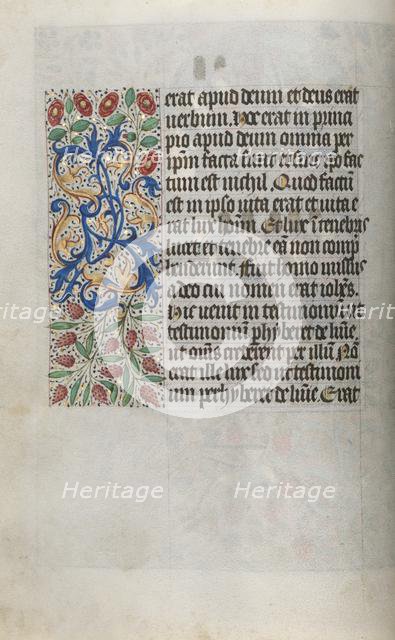 erat apud deum et deus erat
verbum. Hoc erat in princi
pio apud deum omnia per
ipm facta sunt et sine ipo fac
tum est nichil. Quod factū
est in ipso vita erat et vita e
rat lux homī. Et lux ī tenebris
lucet et tenebre eā non comp
henderunt. fuit homo missus
a deo cui nomen erat iohēs.
Hic venit in testimoniū ut
testimoniū phyberet de lūie
ut omēs crederent per illū Nō
erat ille lux sed ut testimoni
um perhyberet de lūie. Erat
Heritage Heritage
Heritage Heritage
Heritage Heritage